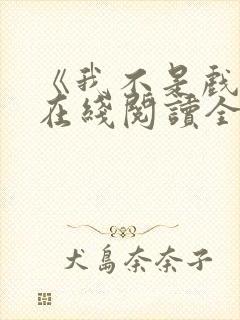 《我不是戲
在綫閱讀全
犬島奈奈子